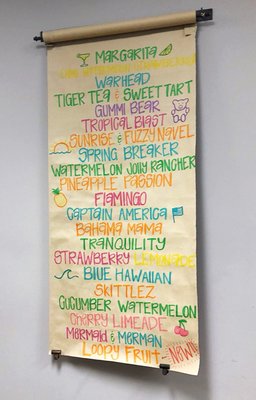 MARGARITA
WARHEAD
TIGER TEA & SWEET TART
GUMMI BEAR
TROPICAL BLAST
SUNRISE & FUZZY NAVEL
SPRING BREAKER
WATERMELON JOLLY RANCHER
PINEAPPLE PASSION
FLAMINGO
CAPTAIN AMERICA
BAHAMA MAMA
TRANQUILITY
STRAWBERRY LEMONADE
BLUE HAWAIIAN
SKITTLEZ
CUCUMBER WATERMELON
CHERRY LIMEADE
MERMAID & MERMAN
LOOPY FRUIT - NEW!!